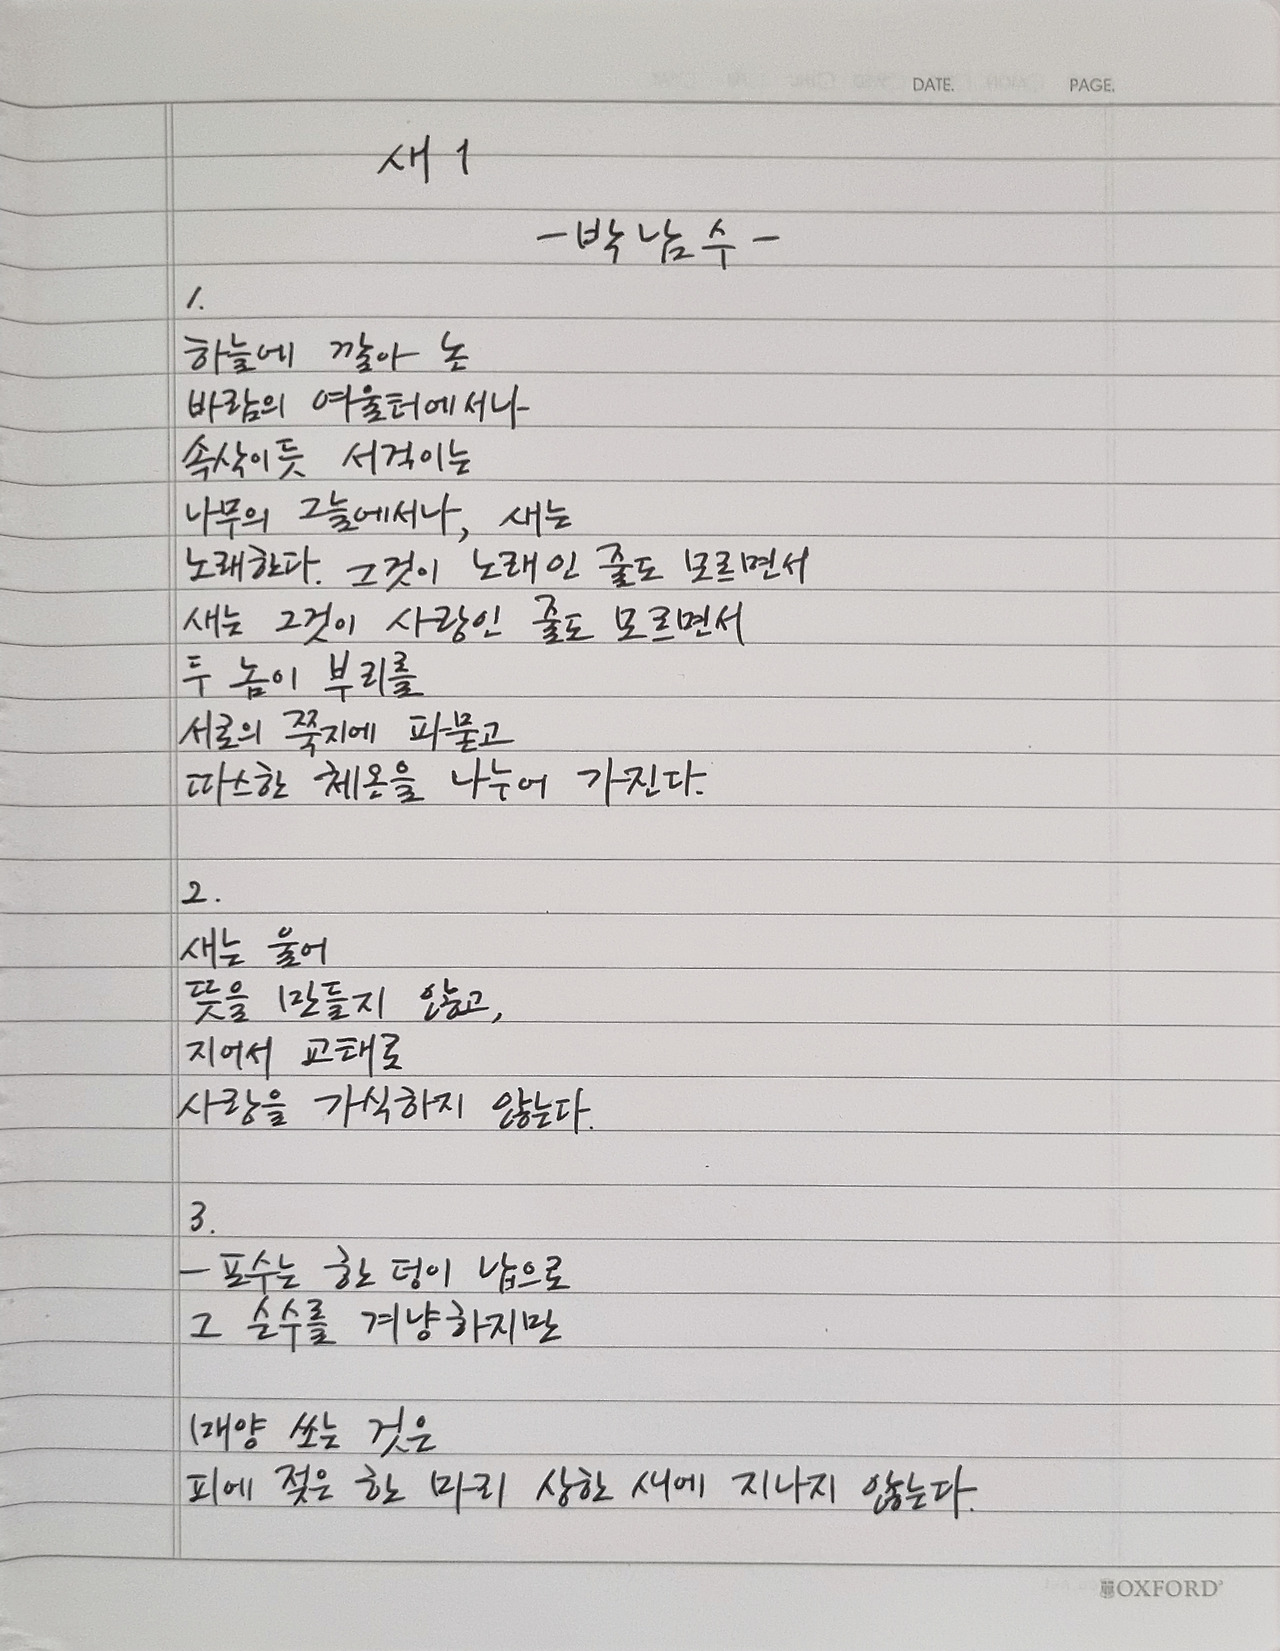 DATE. PAGE.
새 1
- 박남수 -
1.
하늘에 깔아 논
바람의 여울터에서나
속삭이듯 서걱이는
나무의 그늘에서나, 새는
노래한다. 그것이 노래인 줄도 모르면서
새는 그것이 사랑인 줄도 모르면서
두 놈이 부리를
서로의 쭉지에 파묻고
따스한 체온을 나누어 가진다.
2.
새는 울어
뜻을 만들지 않고,
지어서 교태로
사랑을 가식하지 않는다.
3.
- 포수는 한 덩이 납으로
그 순수를 겨냥하지만
매양 쏘는 것은
피에 젖은 한 마리 상한 새에 지나지 않는다.
OXFORD